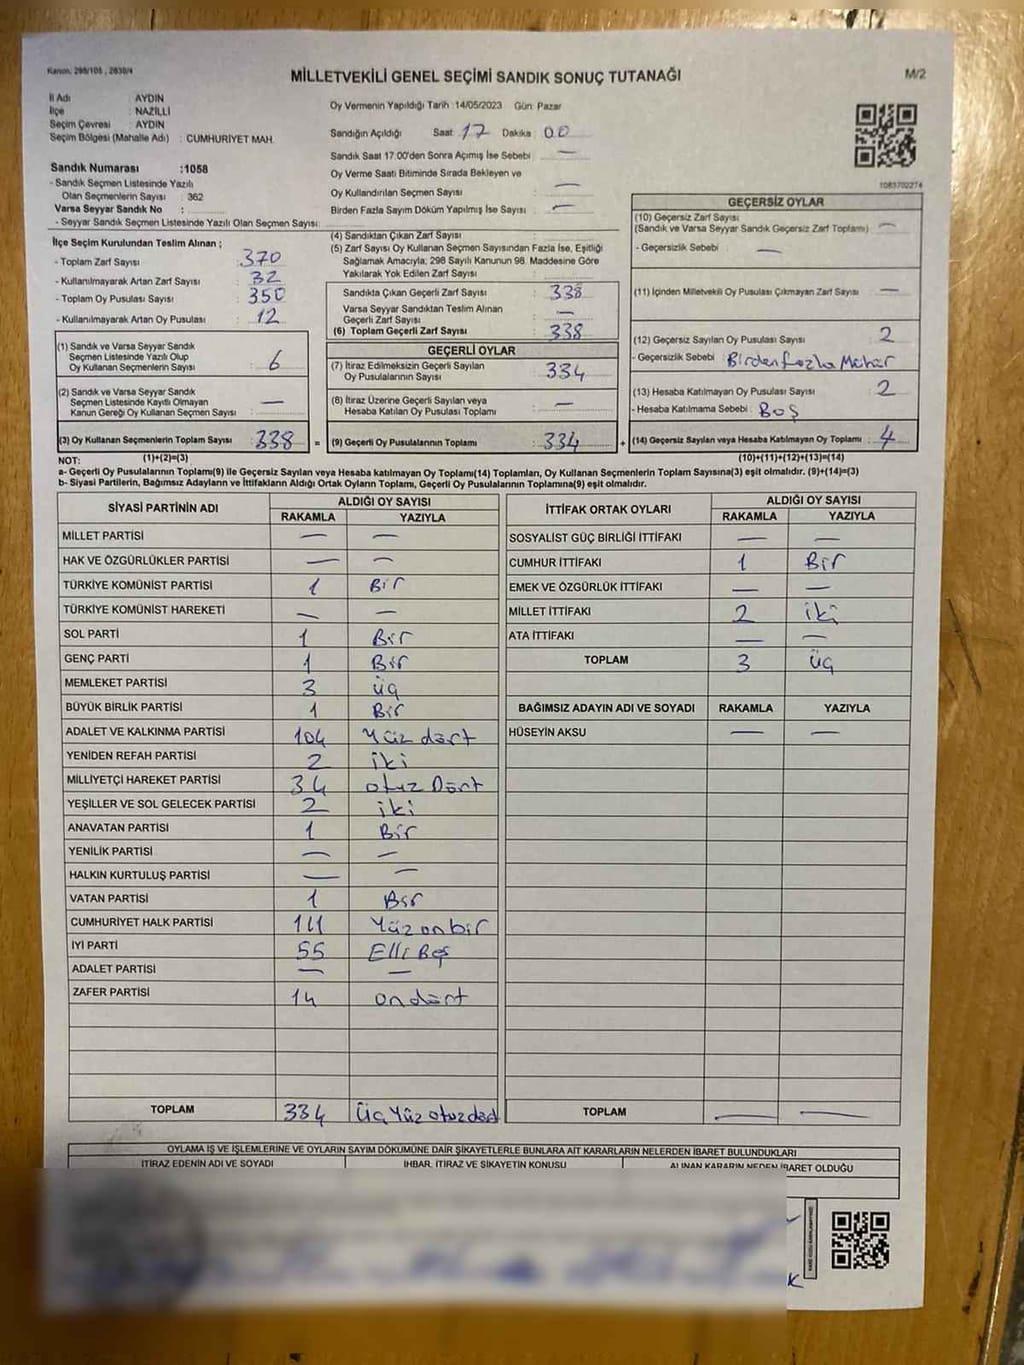 Kanun: 298/105 , 2839/4
MİLLETVEKİLİ GENEL SEÇİMİ SANDIK SONUÇ TUTANAĞI
M/2
İl Adı : AYDIN
İlçe : NAZİLLİ
Seçim Çevresi : AYDIN
Seçim Bölgesi (Mahalle Adı) : CUMHURİYET MAH.
Sandık Numarası :1058
- Sandık Seçmen Listesinde Yazılı
Olan Seçmenlerin Sayısı : 362
Varsa Seyyar Sandık No :
- Seyyar Sandık Seçmen Listesinde Yazılı Olan Seçmen Sayısı:
Oy Vermenin Yapıldığı Tarih :14/05/2023 Gün: Pazar
Sandığın Açıldığı Saat : 17 Dakika : 00
Sandık Saat 17:00'den Sonra Açımış İse Sebebi : —
Oy Verme Saati Bitiminde Sırada Bekleyen ve
Oy Kullandırılan Seçmen Sayısı : —
Birden Fazla Sayım Döküm Yapılmış İse Sayısı : —
1083702274
İlçe Seçim Kurulundan Teslim Alınan ;
- Toplam Zarf Sayısı : 370
- Kullanılmayarak Artan Zarf Sayısı : 32
- Toplam Oy Pusulası Sayısı : 350
- Kullanılmayarak Artan Oy Pusulası : 12
(1) Sandık ve Varsa Seyyar Sandık
Seçmen Listesinde Yazılı Olup
Oy Kullanan Seçmenlerin Sayısı : 6
(2) Sandık ve Varsa Seyyar Sandık
Seçmen Listesinde Kayıtlı Olmayan
Kanun Gereği Oy Kullanan Seçmen Sayısı : —
(3) Oy Kullanan Seçmenlerin Toplam Sayısı : 338 =
(4) Sandıktan Çıkan Zarf Sayısı :
(5) Zarf Sayısı Oy Kullanan Seçmen Sayısından Fazla İse, Eşitliği
Sağlamak Amacıyla; 298 Sayılı Kanunun 98. Maddesine Göre
Yakılarak Yok Edilen Zarf Sayısı :
Sandıkta Çıkan Geçerli Zarf Sayısı : 338
Varsa Seyyar Sandıktan Teslim Alınan
Geçerli Zarf Sayısı : —
(6) Toplam Geçerli Zarf Sayısı : 338
GEÇERLİ OYLAR
(7) İtiraz Edilmeksizin Geçerli Sayılan
Oy Pusulalarının Sayısı : 334
(8) İtiraz Üzerine Geçerli Sayılan veya
Hesaba Katılan Oy Pusulası Toplamı : —
(9) Geçerli Oy Pusulalarının Toplamı : 334 +
GEÇERSİZ OYLAR
(10) Geçersiz Zarf Sayısı
(Sandık ve Varsa Seyyar Sandık Geçersiz Zarf Toplamı) : —
- Geçersizlik Sebebi : —
(11) İçinden Milletvekili Oy Pusulası Çıkmayan Zarf Sayısı : —
(12) Geçersiz Sayılan Oy Pusulası Sayısı : 2
- Geçersizlik Sebebi : Birden fazla Mühür
(13) Hesaba Katılmayan Oy Pusulası Sayısı : 2
- Hesaba Katılmama Sebebi : Boş
(14) Geçersiz Sayılan veya Hesaba Katılmayan Oy Toplamı : 4
NOT: (1)+(2)=(3)
(10)+(11)+(12)+(13)=(14)
a- Geçerli Oy Pusulalarının Toplamı(9) ile Geçersiz Sayılan veya Hesaba katılmayan Oy Toplamı(14) Toplamları, Oy Kullanan Seçmenlerin Toplam Sayısına(3) eşit olmalıdır. (9)+(14)=(3)
b- Siyasi Partilerin, Bağımsız Adayların ve İttifakların Aldığı Ortak Oyların Toplamı, Geçerli Oy Pusulalarının Toplamına(9) eşit olmalıdır.
SİYASİ PARTİNİN ADI ALDIĞI OY SAYISI
RAKAMLA YAZIYLA
MİLLET PARTİSİ — —
HAK VE ÖZGÜRLÜKLER PARTİSİ — —
TÜRKİYE KOMÜNİST PARTİSİ 1 Bir
TÜRKİYE KOMÜNİST HAREKETİ — —
SOL PARTİ 1 Bir
GENÇ PARTİ 1 Bir
MEMLEKET PARTİSİ 3 üç
BÜYÜK BİRLİK PARTİSİ 1 Bir
ADALET VE KALKINMA PARTİSİ 104 Yüz dört
YENİDEN REFAH PARTİSİ 2 iki
MİLLİYETÇİ HAREKET PARTİSİ 34 otuz Dört
YEŞİLLER VE SOL GELECEK PARTİSİ 2 iki
ANAVATAN PARTİSİ 1 Bir
YENİLİK PARTİSİ — —
HALKIN KURTULUŞ PARTİSİ — —
VATAN PARTİSİ 1 Bir
CUMHURİYET HALK PARTİSİ 111 Yüz on bir
İYİ PARTİ 55 Elli Beş
ADALET PARTİSİ — —
ZAFER PARTİSİ 14 on dört
TOPLAM 334 Üç Yüz otuz dört
İTTİFAK ORTAK OYLARI ALDIĞI OY SAYISI
RAKAMLA YAZIYLA
SOSYALİST GÜÇ BİRLİĞİ İTTİFAKI — —
CUMHUR İTTİFAKI 1 Bir
EMEK VE ÖZGÜRLÜK İTTİFAKI — —
MİLLET İTTİFAKI 2 iki
ATA İTTİFAKI — —
TOPLAM 3 üç
BAĞIMSIZ ADAYIN ADI VE SOYADI RAKAMLA YAZIYLA
HÜSEYİN AKSU — —
TOPLAM — —
OYLAMA İŞ VE İŞLEMLERİNE VE OYLARIN SAYIM DÖKÜMÜNE DAİR ŞİKAYETLERLE BUNLARA AİT KARARLARIN NELERDEN İBARET BULUNDUKLARI
İTİRAZ EDENİN ADI VE SOYADI İHBAR, İTİRAZ VE ŞİKAYETİN KONUSU ALINAN KARARIN NEDEN İBARET OLDUĞU